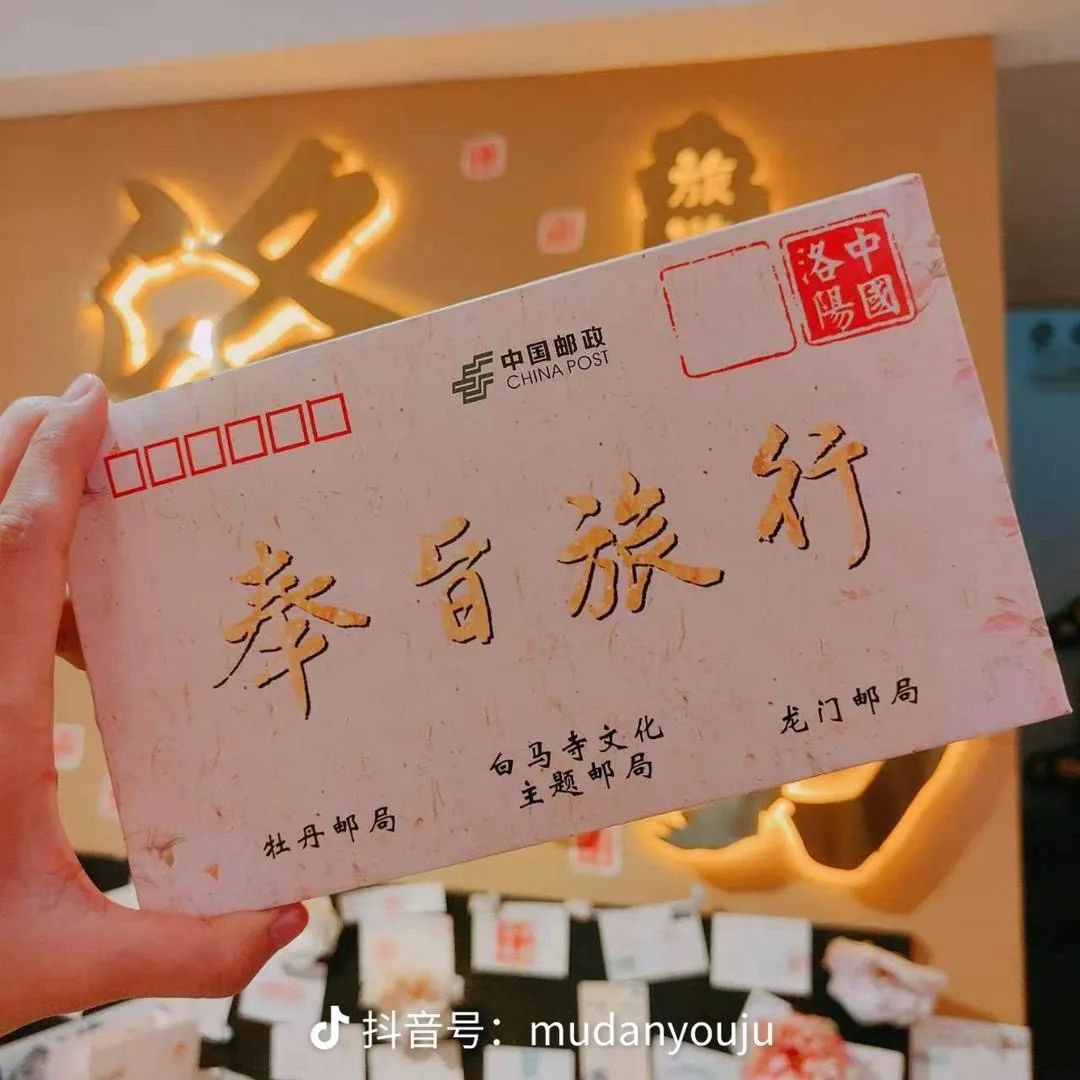 洛
旅游
中國
洛陽
中国邮政
CHINA POST
奉旨旅行
牡丹邮局
白马寺文化
主题邮局
龙门邮局
抖音号：mudanyouju